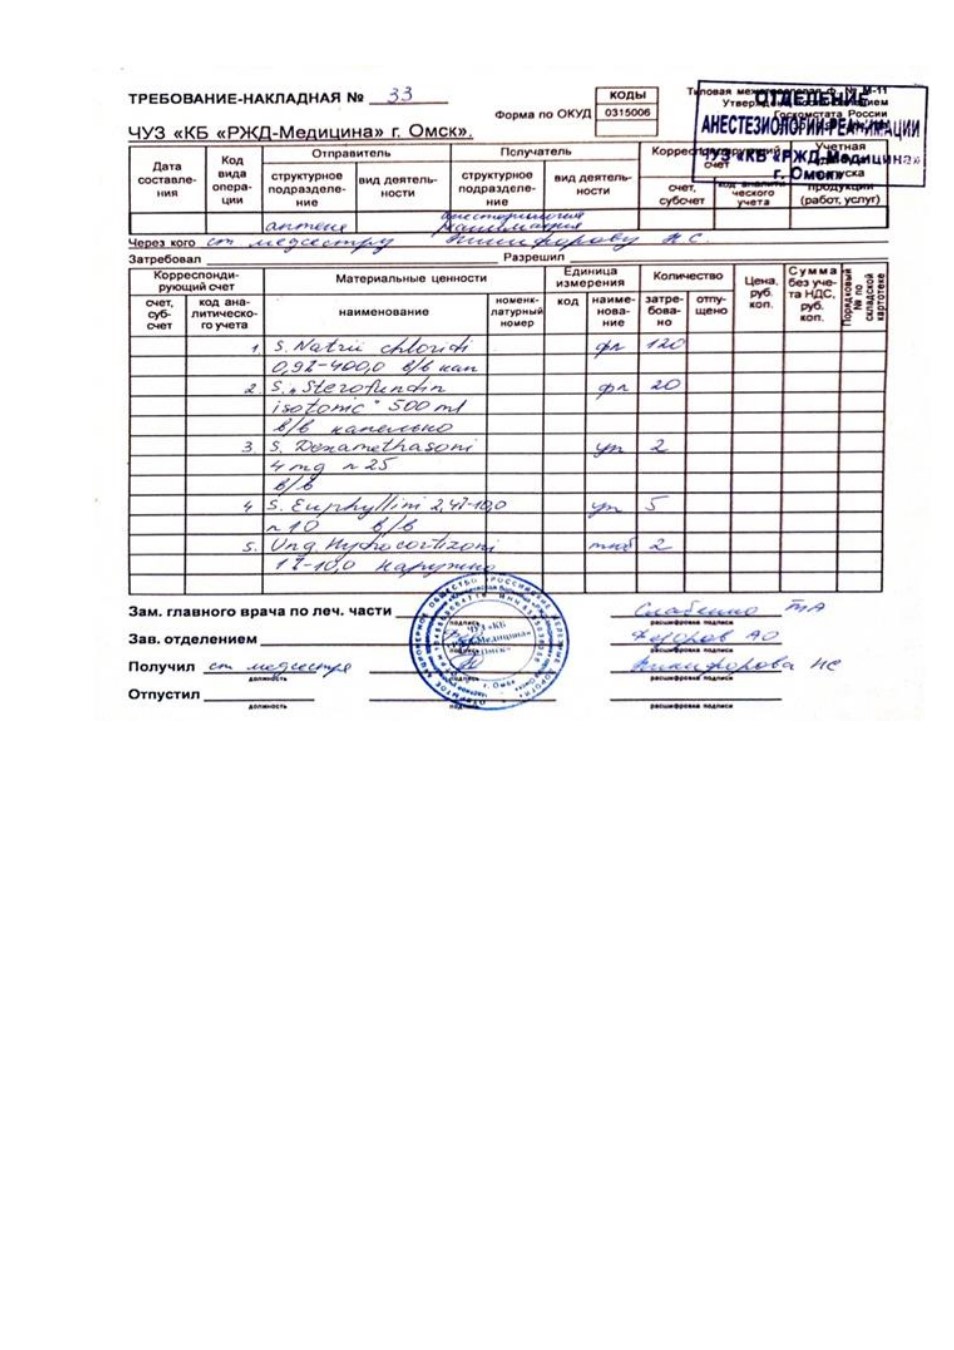 ТРЕБОВАНИЕ-НАКЛАДНАЯ № 33
КОДЫ
Форма по ОКУД 0315006
Типовая межотраслевая ф. № М-11
Госкомстата России
ОТДЕЛЕНИЕ
АНЕСТЕЗИОЛОГИИ-РЕАНИМАЦИИ
ЧУЗ «КБ «РЖД-Медицина»
г. Омск»
ЧУЗ «КБ «РЖД-Медицина» г. Омск».
Дата составле-ния
Код вида опера-ции
Отправитель
Получатель
Корреспондирующий счет
Учетная
структурное подразделе-ние
вид деятель-ности
структурное подразделе-ние
вид деятель-ности
счет, субсчет
код аналити-ческого учета
продукции (работ, услуг)
аптека
Через кого ст медсестру Никифорову Н С.
Затребовал Разрешил
Корреспонди-рующий счет
Материальные ценности
Единица измерения
Количество
Цена, руб. коп.
Сумма без уче-та НДС, руб. коп.
Порядковый № по складской картотеке
счет, суб-счет
код ана-литическо-го учета
наименование
номенк-латурный номер
код
наиме-нова-ние
затре-бова-но
отпу-щено
1. S. Natrii chloridi фл 120
0,9%-400,0 в/в кап
2 S. „Sterofundin фл 20
isotonic" 500 ml
в/в капельно
3. S. Dexamethasoni уп 2
4 mg n 25
в/в
4 S. Euphyllini 2,4%-10,0 уп 5
n 10 в/в
5. Ung. Hydrocortizoni тюб 2
1%-10,0 наружно
Зам. главного врача по леч. части
подпись расшифровка подписи
Зав. отделением Федоров АО
подпись расшифровка подписи
Получил ст медсестра Никифорова НС
должность подпись расшифровка подписи
Отпустил
должность подпись расшифровка подписи
ЧУЗ «КБ
«РЖД-Медицина»
г. Омск»
г. Омск